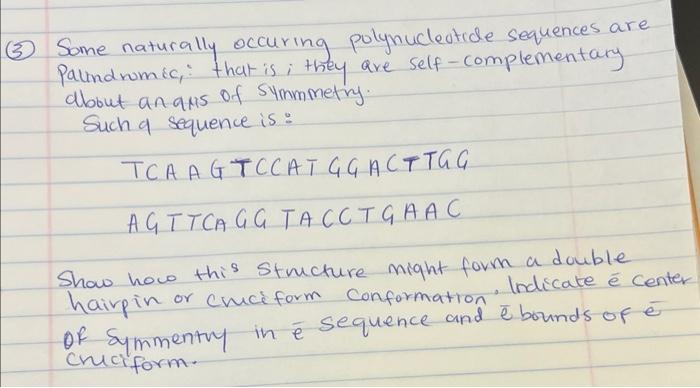 ③ Some naturally occuring polynucleotide sequences are
Palindromic; that is ; they are self-complementary
about an axis of symmmetry.
Such a sequence is :
TCAAGTCCATGGACTTGG
AGTTCAGGTACCTGAAC
Show how this structure might form a double
hairpin or cruciform conformation. Indicate ē center
of symmentry in ē sequence and ē bounds of ē
cruciform.